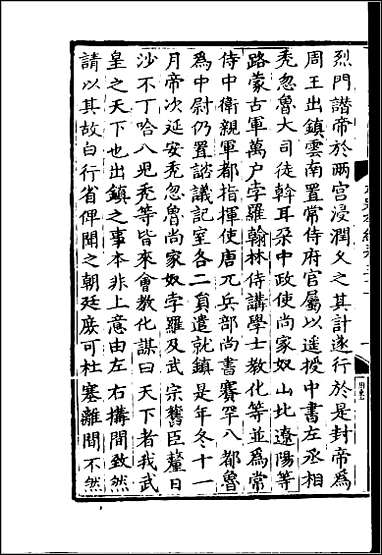 烈門譖帝於兩宮浸潤久之其計遂行於是封帝爲
周王出鎮雲南置常侍府官屬以遥授中書左丞相
禿忽魯大司徒斡耳朶中政使尚家奴山北遼陽等
路蒙古軍萬戶孛羅翰林侍講學士教化等並爲常
侍中衛親軍都指揮使唐元兵部尚書賽罕八都魯
爲中尉仍置諮議記室各二員遣就鎮是年冬十一
月帝次延安禿忽魯尚家奴孛羅及武宗舊臣釐日
沙不丁哈八児禿等皆來會教化謀曰天下者我武
皇之天下也出鎮之事本非上意由左右搆間致然
請以其故白行省俾聞之朝廷庶可杜塞離間不然